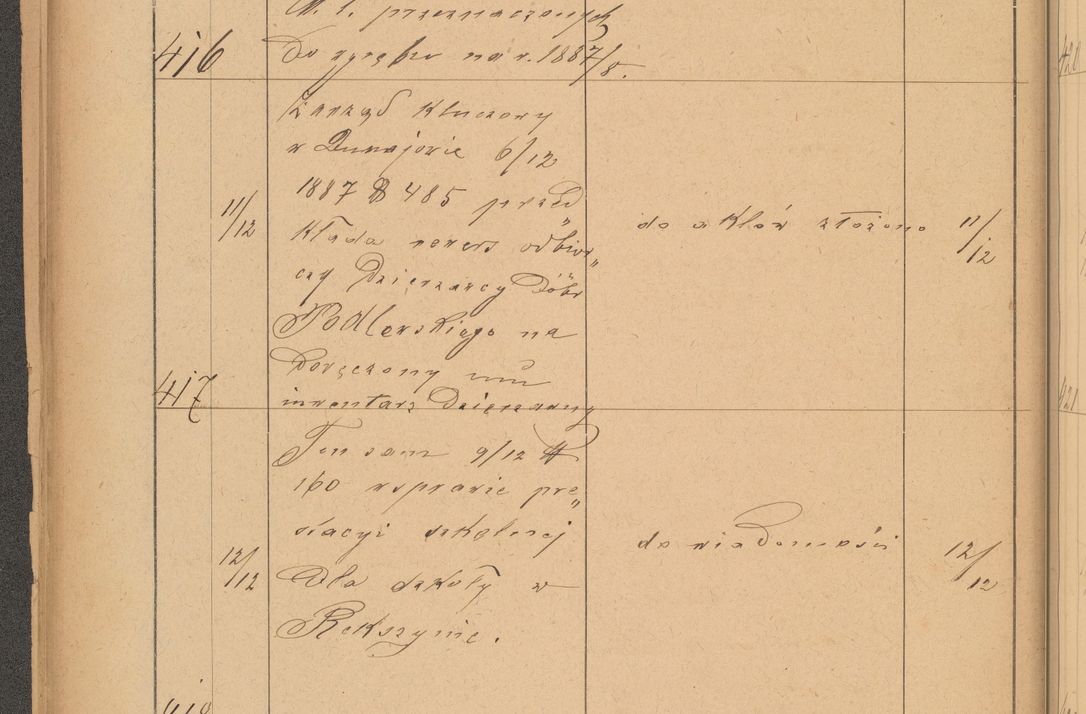 M. l. przeznaczonych
416 do zrębu na r. 1887/8.
Zarząd Kluczowy
w Dunajowie 6/12
1887 N 485 przed„
11/12 kłada rewers odbior„ do aktów złożono 11/12
czy Dzierżawcy Dóbr
Podlewskiego na
doręczony mu
417 inwentarz Dzierżawny
Ten sam 9/12 N
160 w sprawie pre„
stacyi szkolnej do wiadomości 12/12
12/12 Dla szkoły w
Rekszynie.
418
420
421